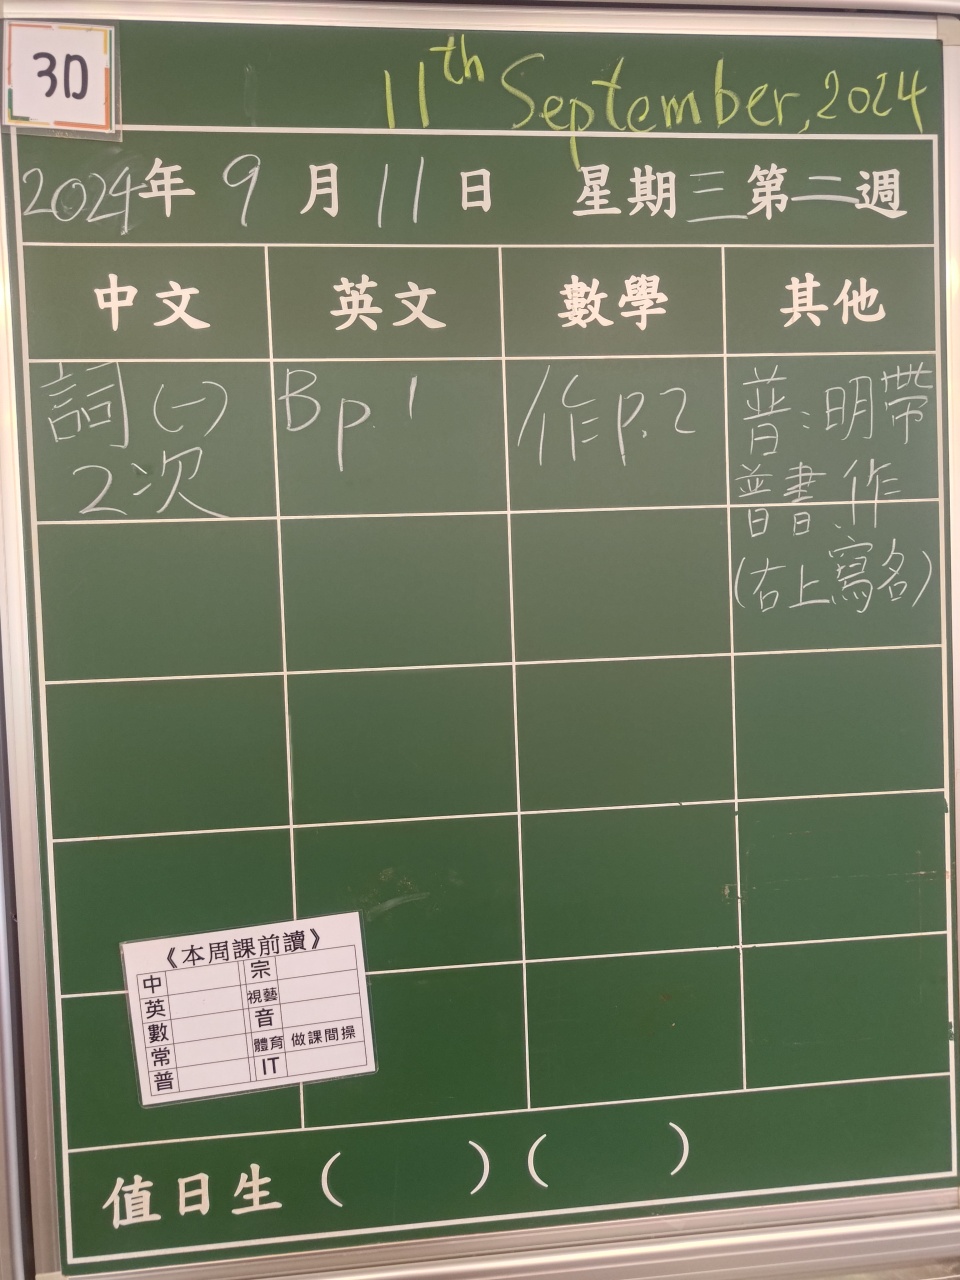 3D
11th September, 2024
2024年 9 月 11 日 星期三第二週
中文 英文 數學 其他
詞(一)
2次
Bp 1
作p.2
普：明帶
普書、作
(右上寫名)
《本周課前讀》
中 宗
英 視藝
數 音
常 體育 做課間操
普 IT
值日生 ( ) ( )